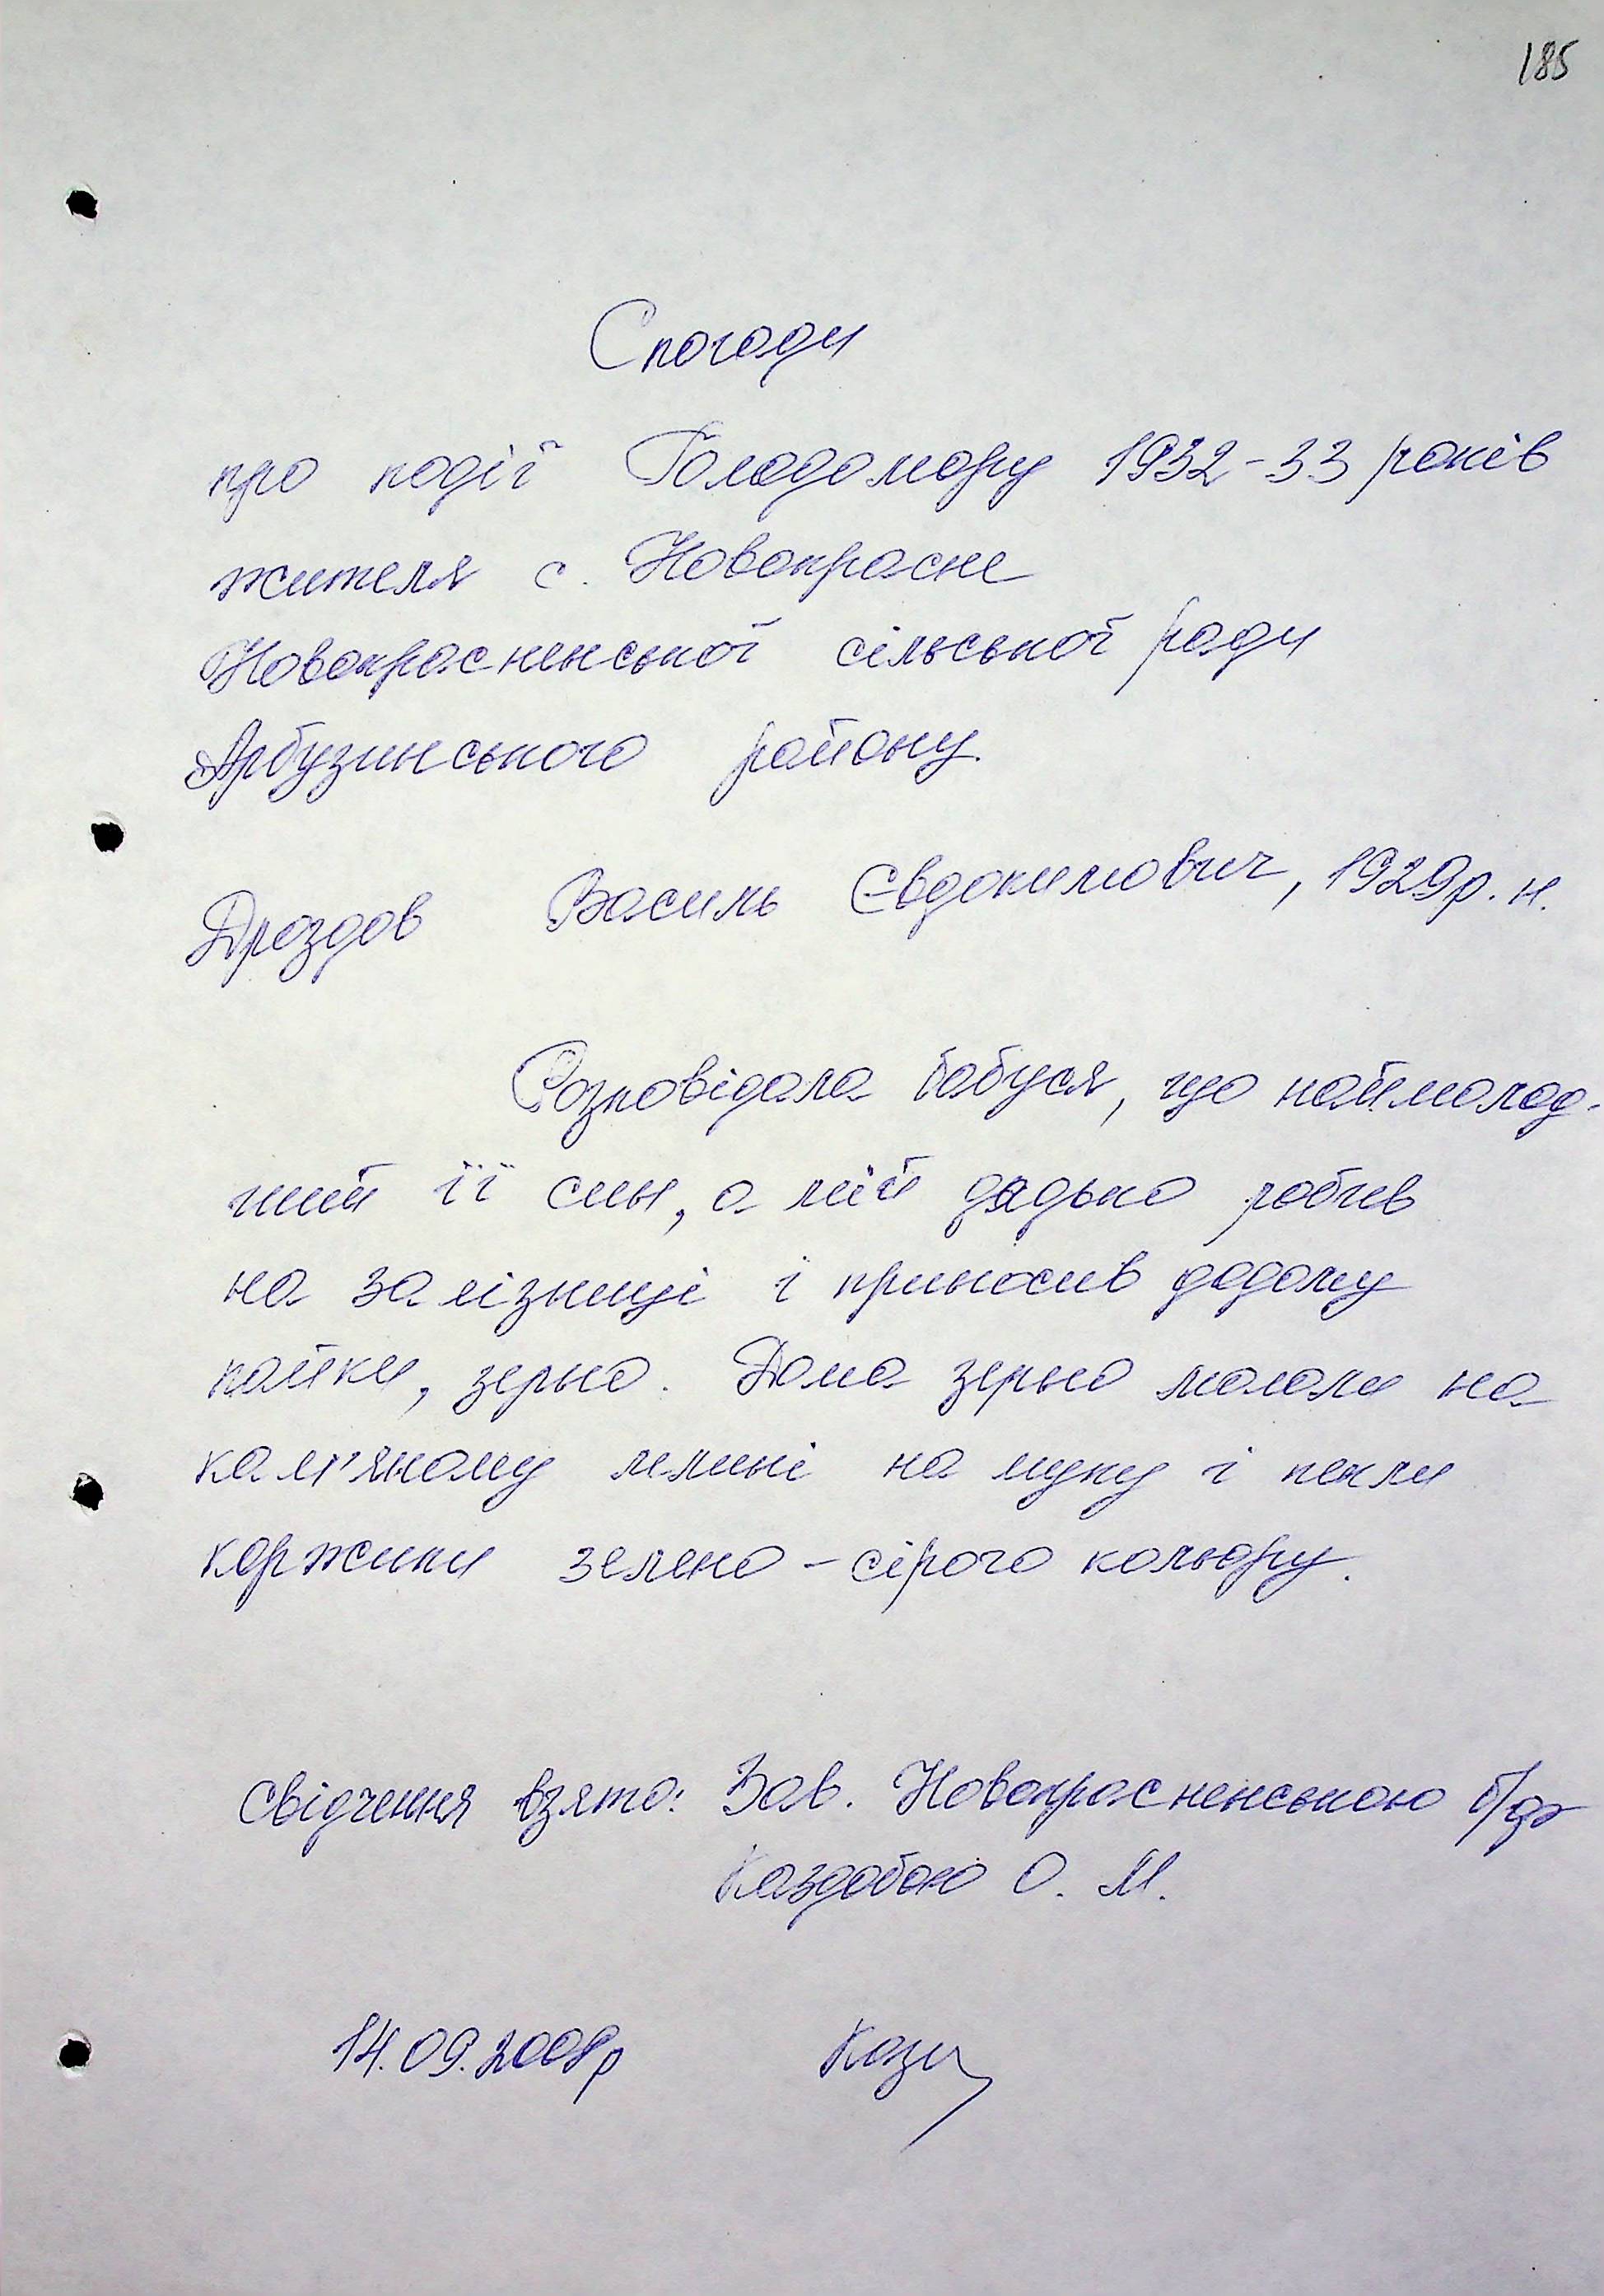 185
Спогади
про події Голодомору 1932-33 років
жителя с. Новокрасне
Новокрасненської сільської ради
Арбузинського району.
Дроздов Василь Євдокимович, 1929р. н.
Розповідала бабуся, що наймолод-
ший її син, а мій дядько робив
на залізниці і приносив додому
пайки, зерно. Дома зерно мололи на
кам'яному млині на муку і пекли
коржики зелено-сірого кольору.
Свідчення взято: Зав. Новокрасненською б/ф
Каздобою О. М.
14.09.2008р